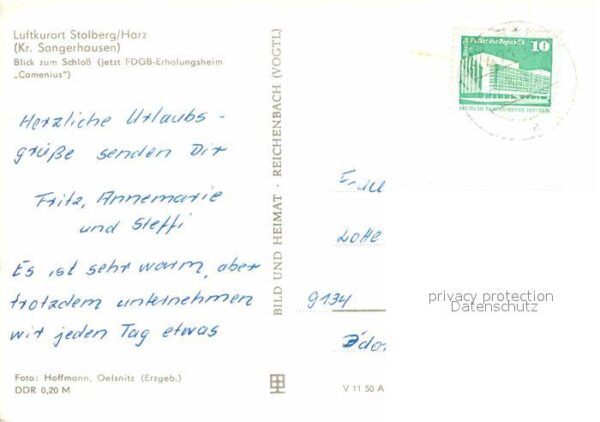 Luftkurort Stolberg/Harz
(Kr. Sangerhausen)
Blick zum Schloß (jetzt FDGB-Erholungsheim
„Comenius")
Herzliche Urlaubs-
grüße senden Dir
Fritz, Annemarie
und Steffi
Es ist sehr warm, aber
trotzdem unternehmen
wir jeden Tag etwas
Foto: Hoffmann, Oelsnitz (Erzgeb.)
DDR 0,20 M
BILD UND HEIMAT · REICHENBACH (VOGTL)
V 11 50 A
Berlin, Palast der Republik
10
DEUTSCHE DEMOKRATISCHE REPUBLIK
Lotte
9134
privacy protection
Datenschutz